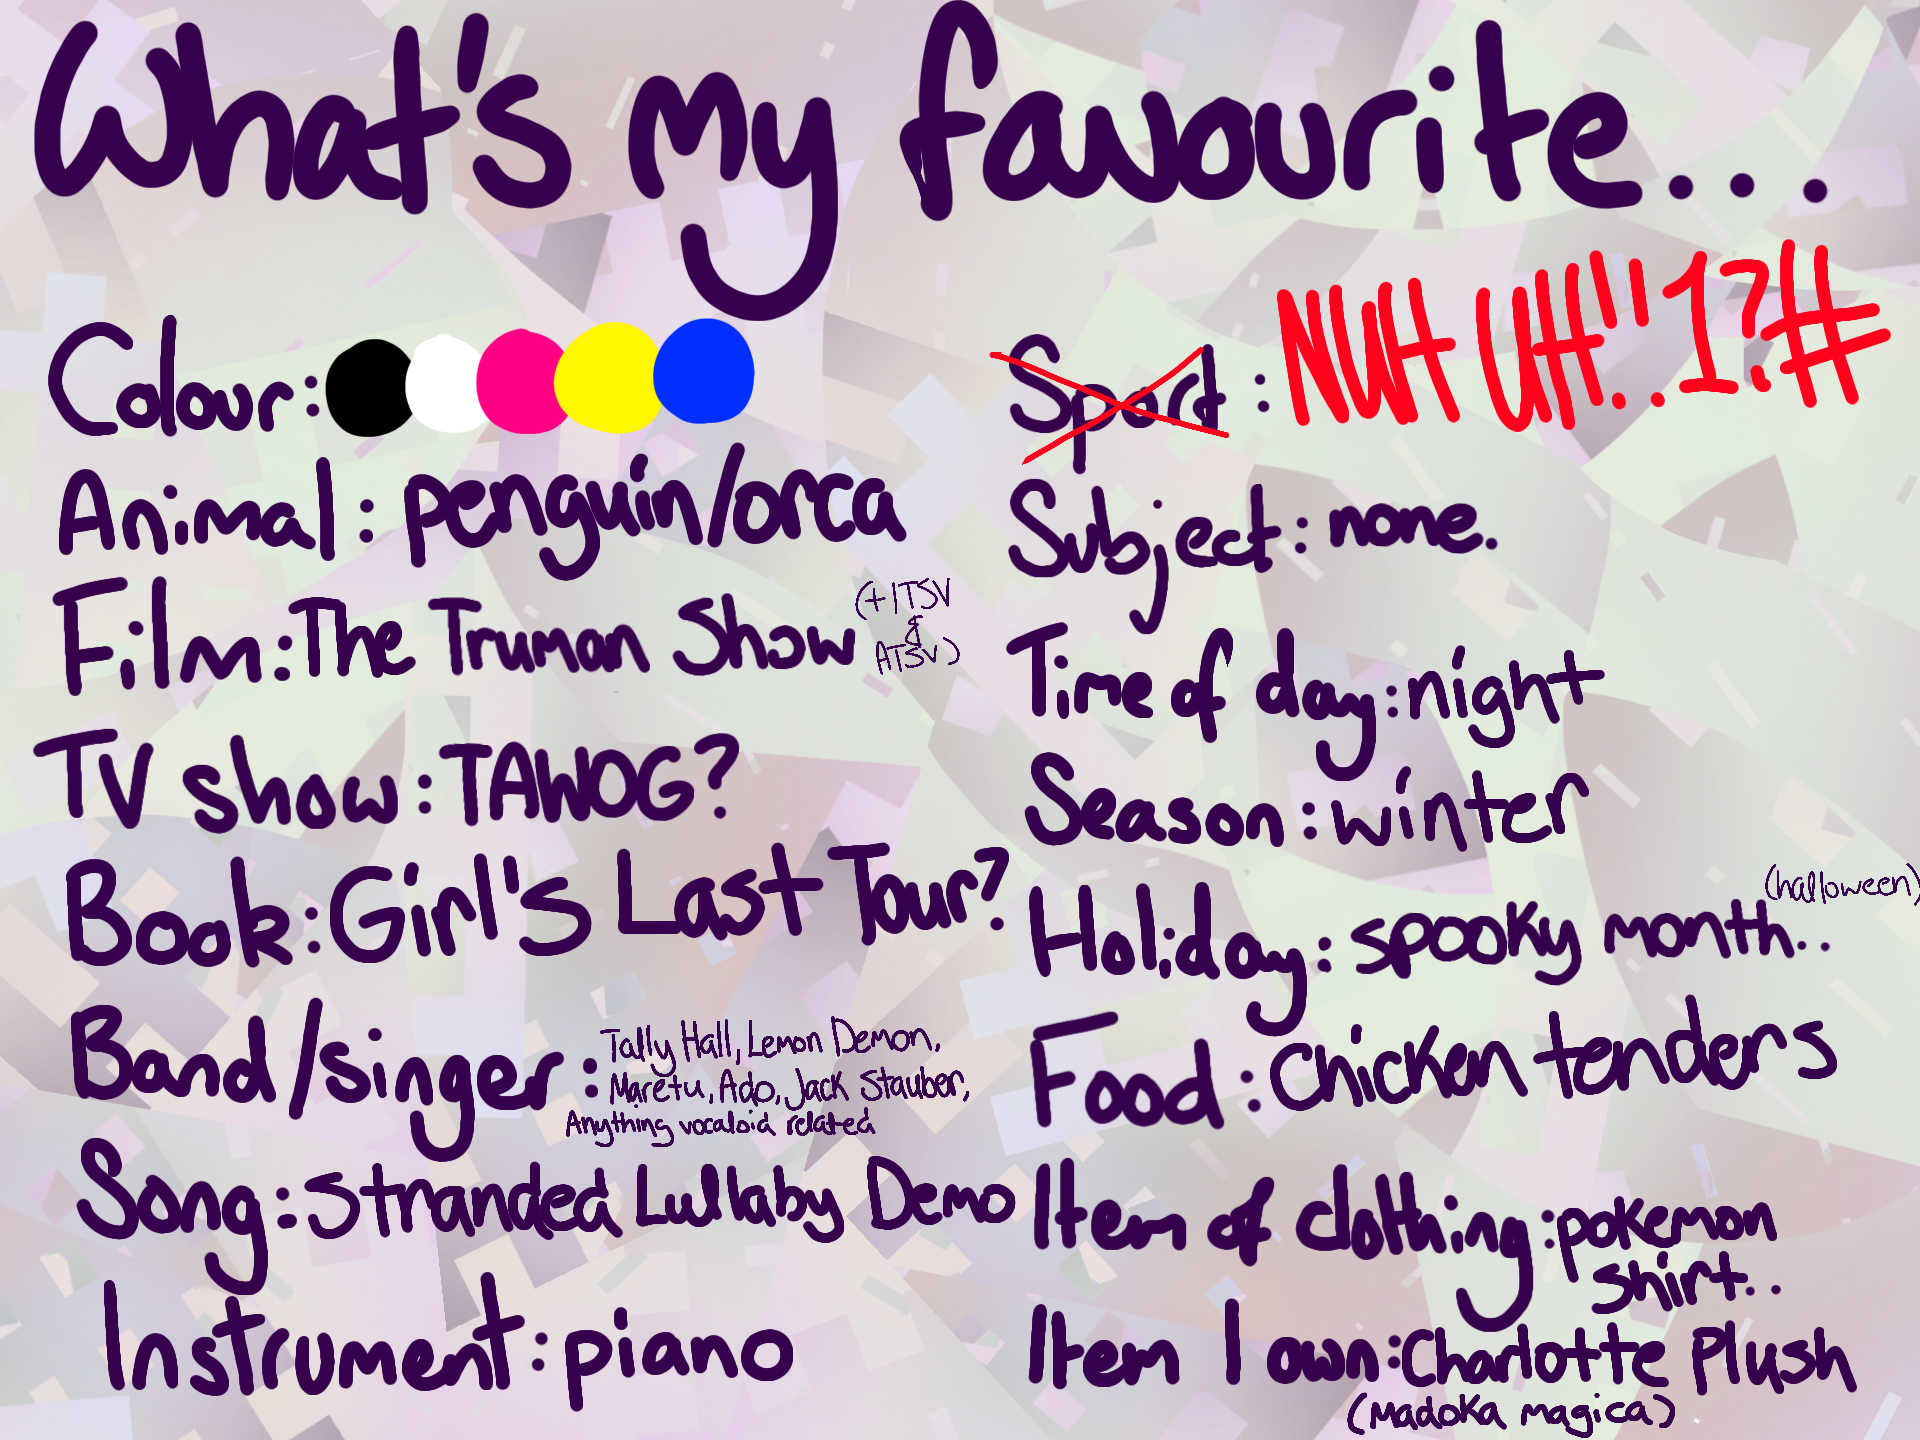 What's my favourite...
Colour:
Animal: penguin/orca
Film: The Truman Show (+ITSV & ATSV)
TV show: TAWOG?
Book: Girl's Last Tour?
Band/singer: Tally Hall, Lemon Demon,
Maretu, Ado, Jack Stauber,
Anything vocaloid related
Song: Stranded Lullaby Demo
Instrument: piano
Sport: NUH UH!!..1?#
Subject: none.
Time of day: night
Season: winter
Holiday: spooky month.. (halloween)
Food: Chicken tenders
Item of clothing: pokemon
shirt..
Item I own: Charlotte Plush
(Madoka magica)